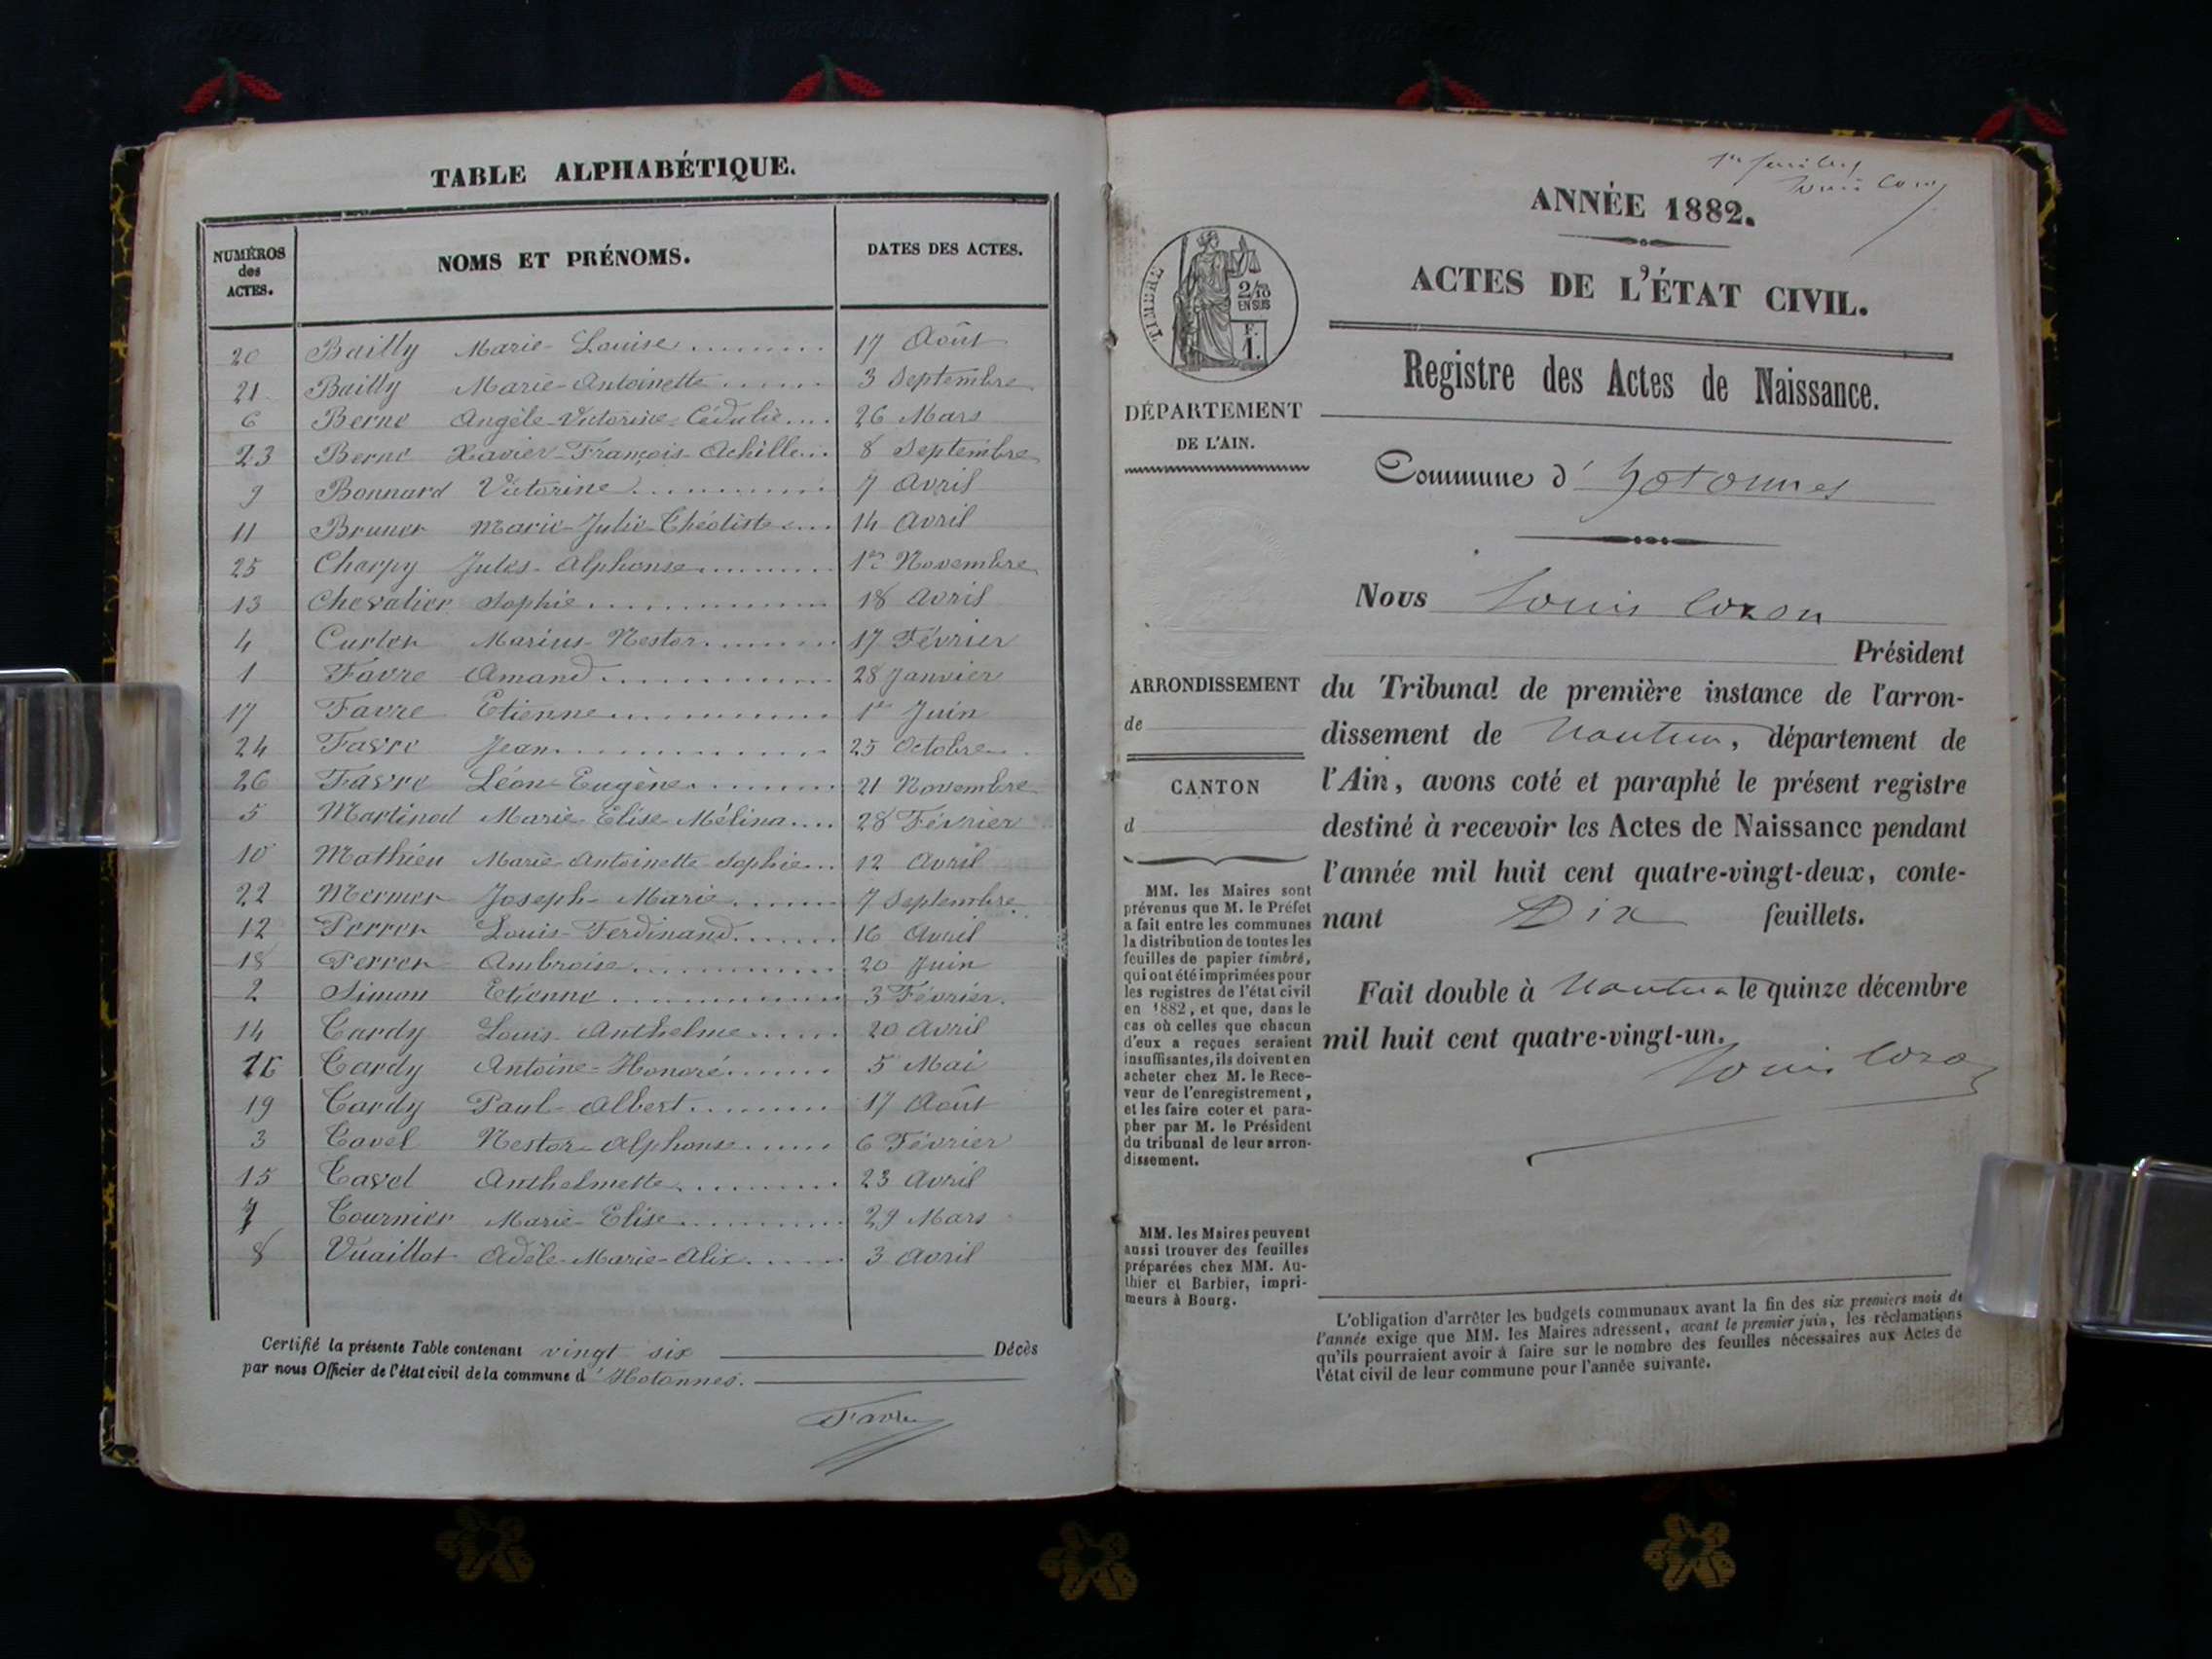 TABLE ALPHABÉTIQUE.
NUMÉROS des ACTES. NOMS ET PRÉNOMS. DATES DES ACTES.
20 Bailly Marie-Louise 17 Août
21 Bailly Marie-Antoinette 3 Septembre
6 Berne Angèle-Victorine-Cédulie 26 Mars
23 Berne Xavier-François-Achille 8 Septembre
9 Bonnard Victorine 7 Avril
11 Brunet Marie-Julie-Théotiste 14 Avril
25 Charpy Jules-Alphonse 1er Novembre
13 Chevalier Sophie 18 Avril
4 Curtet Marius-Nestor 17 Février
1 Favre Amand 28 Janvier
17 Favre Etienne 1er Juin
24 Favre Jean 25 Octobre
26 Favre Léon-Eugène 21 Novembre
5 Martinod Marie-Elise-Mélina 28 Février
10 Mathieu Marie-Antoinette-Sophie 12 Avril
22 Mermet Joseph-Marie 7 Septembre
12 Perret Louis-Ferdinand 16 Avril
18 Perret Ambroise 20 Juin
2 Simon Etienne 3 Février
14 Tardy Louis-Anthelme 20 Avril
16 Tardy Antoine-Honoré 5 Mai
19 Tardy Paul-Albert 17 Août
3 Tavel Nestor-Alphonse 6 Février
15 Tavel Anthelmette 23 Avril
7 Tournier Marie-Elise 29 Mars
8 Vuaillat Adèle-Marie-Alix 3 Avril
Certifié la présente Table contenant vingt six Décès
par nous Officier de l'état civil de la commune d'Hotonnes.
Favre
1er feuillet
Louis Cozon
ANNÉE 1882.
ACTES DE L'ÉTAT CIVIL.
Registre des Actes de Naissance.
TIMBRE
2/10 EN SUS
F. 1.
DÉPARTEMENT
DE L'AIN.
Commune d'Hotonnes
Nous Louis Cozon
Président
du Tribunal de première instance de l'arron-
dissement de Nantua, département de
l'Ain, avons coté et paraphé le présent registre
destiné à recevoir les Actes de Naissance pendant
l'année mil huit cent quatre-vingt-deux, conte-
nant Dix feuillets.
Fait double à Nantua le quinze décembre
mil huit cent quatre-vingt-un.
Louis Cozon
ARRONDISSEMENT
de
CANTON
d
MM. les Maires sont
prévenus que M. le Préfet
a fait entre les communes
la distribution de toutes les
feuilles de papier timbré,
qui ont été imprimées pour
les registres de l'état civil
en 1882, et que, dans le
cas où celles que chacun
d'eux a reçues seraient
insuffisantes, ils doivent en
acheter chez M. le Rece-
veur de l'enregistrement,
et les faire coter et para-
pher par M. le Président
du tribunal de leur arron-
dissement.
MM. les Maires peuvent
aussi trouver des feuilles
préparées chez MM. Au-
thier et Barbier, impri-
meurs à Bourg.
L'obligation d'arrêter les budgets communaux avant la fin des six premiers mois de
l'année exige que MM. les Maires adressent, avant le premier juin, les réclamations
qu'ils pourraient avoir à faire sur le nombre des feuilles nécessaires aux Actes de
l'état civil de leur commune pour l'année suivante.